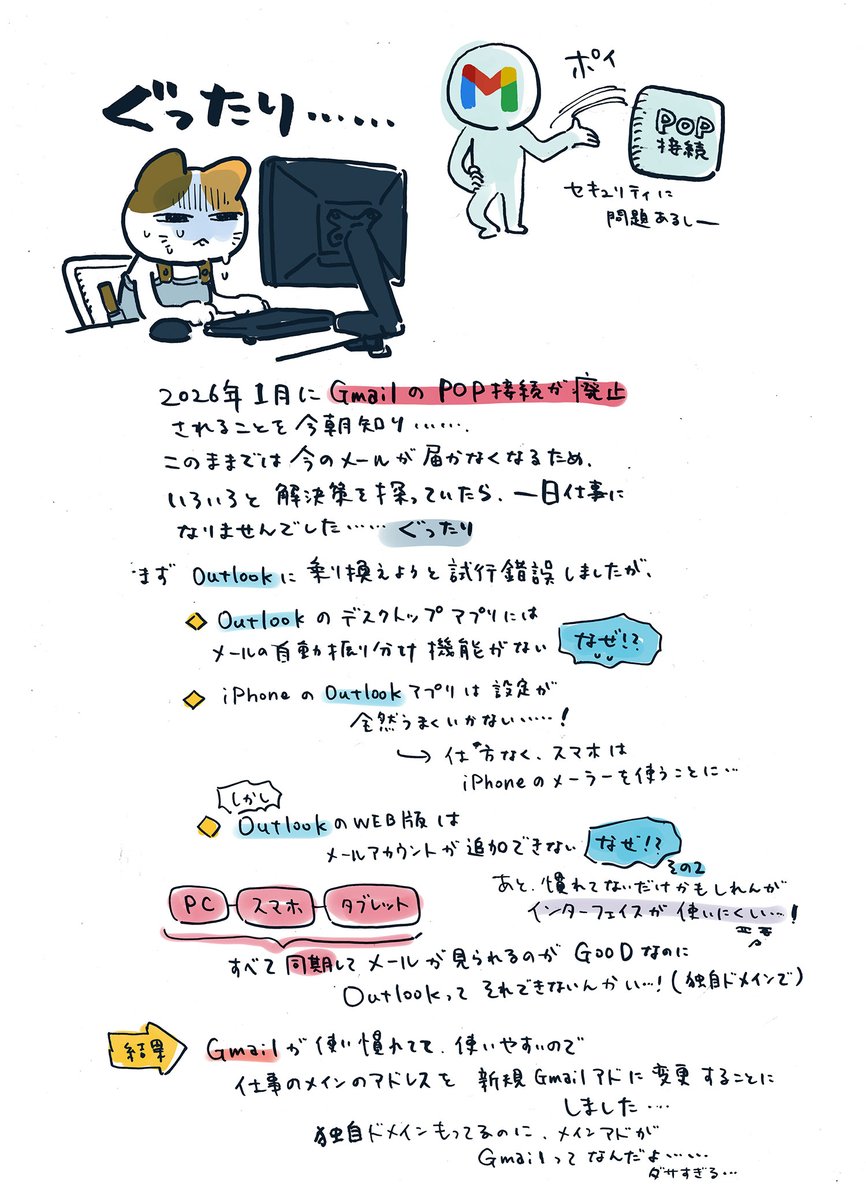 ぐったり……
ポイ
POP
接続
セキュリティに
問題あるしー
2026年1月にGmailのPOP接続が廃止
されることを今朝知り…….
このままでは今のメールが届かなくなるため、
いろいろと解決策を探っていたら、一日仕事に
なりませんでした……ぐったり
まずOutlookに乗り換えようと試行錯誤しましたが、
Outlookのデスクトップアプリには
メールの自動振り分け機能がない
なぜ!?
iPhoneのOutlookアプリは設定が
全然うまくいかない……!
→仕方なく、スマホは
iPhoneのメーラーを使うことに…
しかし
OutlookのWEB版は
メールアカウントが追加できない
なぜ!?
その2
あと、慣れてないだけかもしれんが
インターフェイスが使いにくい…!
PC
スマホ
タブレット
すべて同期してメールが見られるのがGOODなのに
Outlookってそれできないんかい…!(独自ドメインで)
結果
Gmailが使い慣れてて、使いやすいので
仕事のメインのアドレスを新規Gmailアドに変更することに
しました…
独自ドメインもってるのに、メインアドが
Gmailってなんだよ……
ダサすぎる…